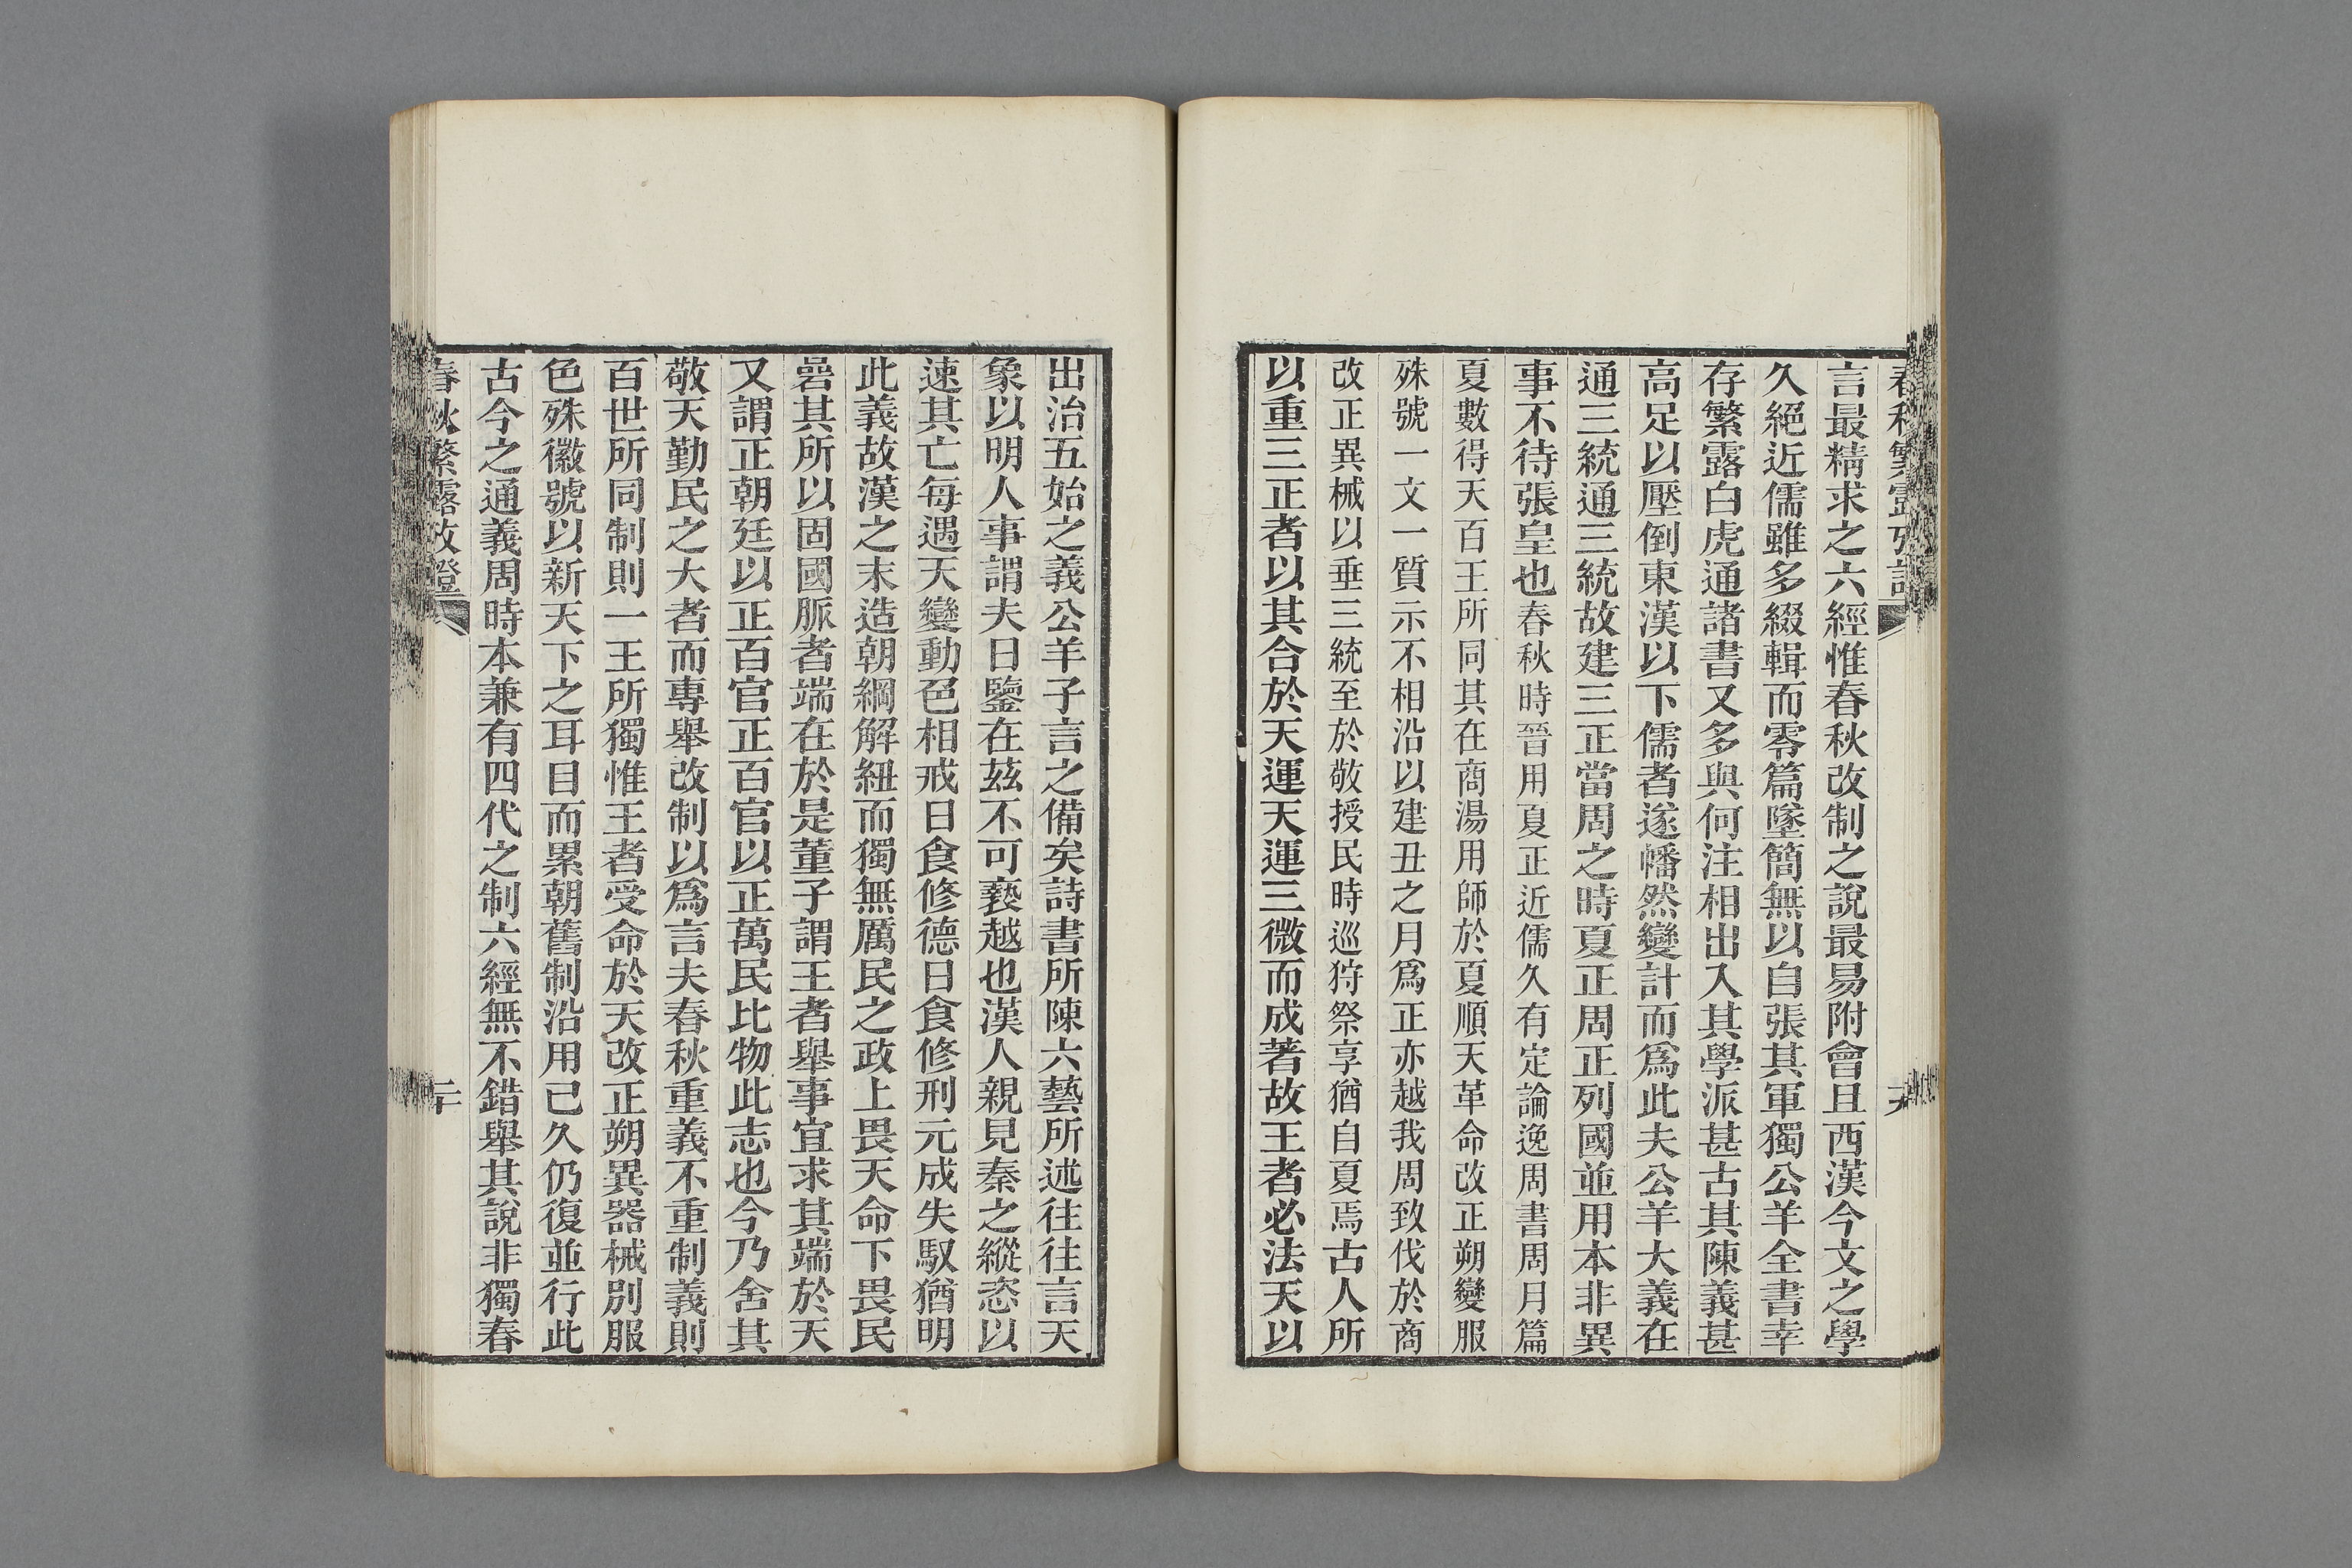 言最精求之六經惟春秋改制之說最易附會且西漢今文之學
久絕近儒雖多綴輯而零篇墜簡無以自張其軍獨公羊全書幸
存繁露白虎通諸書又多與何注相出入其學派甚古其陳義甚
高足以壓倒東漢以下儒者遂幡然變計而爲此夫公羊大義在
通三統通三統故建三正當周之時夏正周正列國並用本非異
事不待張皇也春秋時晉用夏正近儒久有定論逸周書周月篇
夏數得天百王所同其在商湯用師於夏順天革命改正朔變服
殊號一文一質示不相沿以建丑之月爲正亦越我周致伐於商
改正異械以垂三統至於敬授民時巡狩祭享猶自夏焉古人所
以重三正者以其合於天運天運三微而成著故王者必法天以
出治五始之義公羊子言之備矣詩書所陳六藝所述往往言天
象以明人事謂夫日鑒在茲不可褻越也漢人親見秦之縱恣以
速其亡每遇天變動色相戒日食修德日食修刑元成失馭猶明
此義故漢之末造朝綱解紐而獨無厲民之政上畏天命下畏民
碞其所以固國脈者端在於是董子謂王者舉事宜求其端於天
又謂正朝廷以正百官正百官以正萬民比物此志也今乃舍其
敬天勤民之大者而專舉改制以爲言夫春秋重義不重制義則
百世所同制則一王所獨惟王者受命於天改正朔異器械別服
色殊徽號以新天下之耳目而累朝舊制沿用已久仍復並行此
古今之通義周時本兼有四代之制六經無不錯舉其說非獨春
春秋繁露攷證
二十